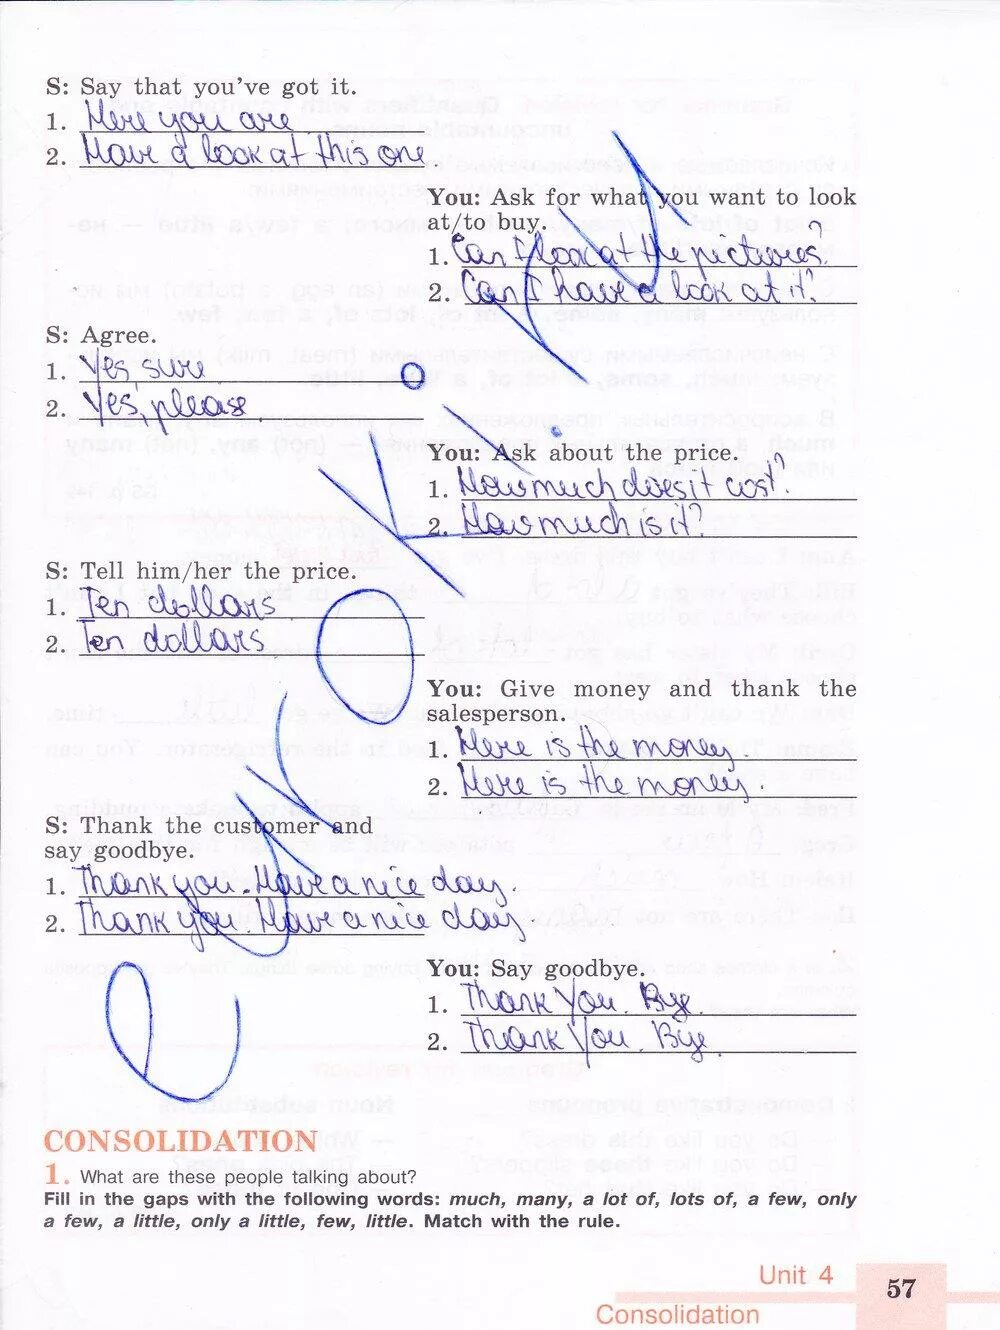 S: Say that you've got it.
1. Here you are
2. Have a look at this one.
You: Ask for what you want to look
at/to buy.
1. Can I look at the pictures?
2. Can I have a look at it?
S: Agree.
1. Yes, sure
2. Yes, please.
You: Ask about the price.
1. How much does it cost?
2. How much is it?
S: Tell him/her the price.
1. Ten dollars
2. Ten dollars
You: Give money and thank the
salesperson.
1. Here is the money.
2. Here is the money.
S: Thank the customer and
say goodbye.
1. Thank you. Have a nice day.
2. Thank you. Have a nice day.
You: Say goodbye.
1. Thank You. Bye.
2. Thank You. Bye.
CONSOLIDATION
1. What are these people talking about?
Fill in the gaps with the following words: much, many, a lot of, lots of, a few, only
a few, a little, only a little, few, little. Match with the rule.
Unit 4
57
Consolidation